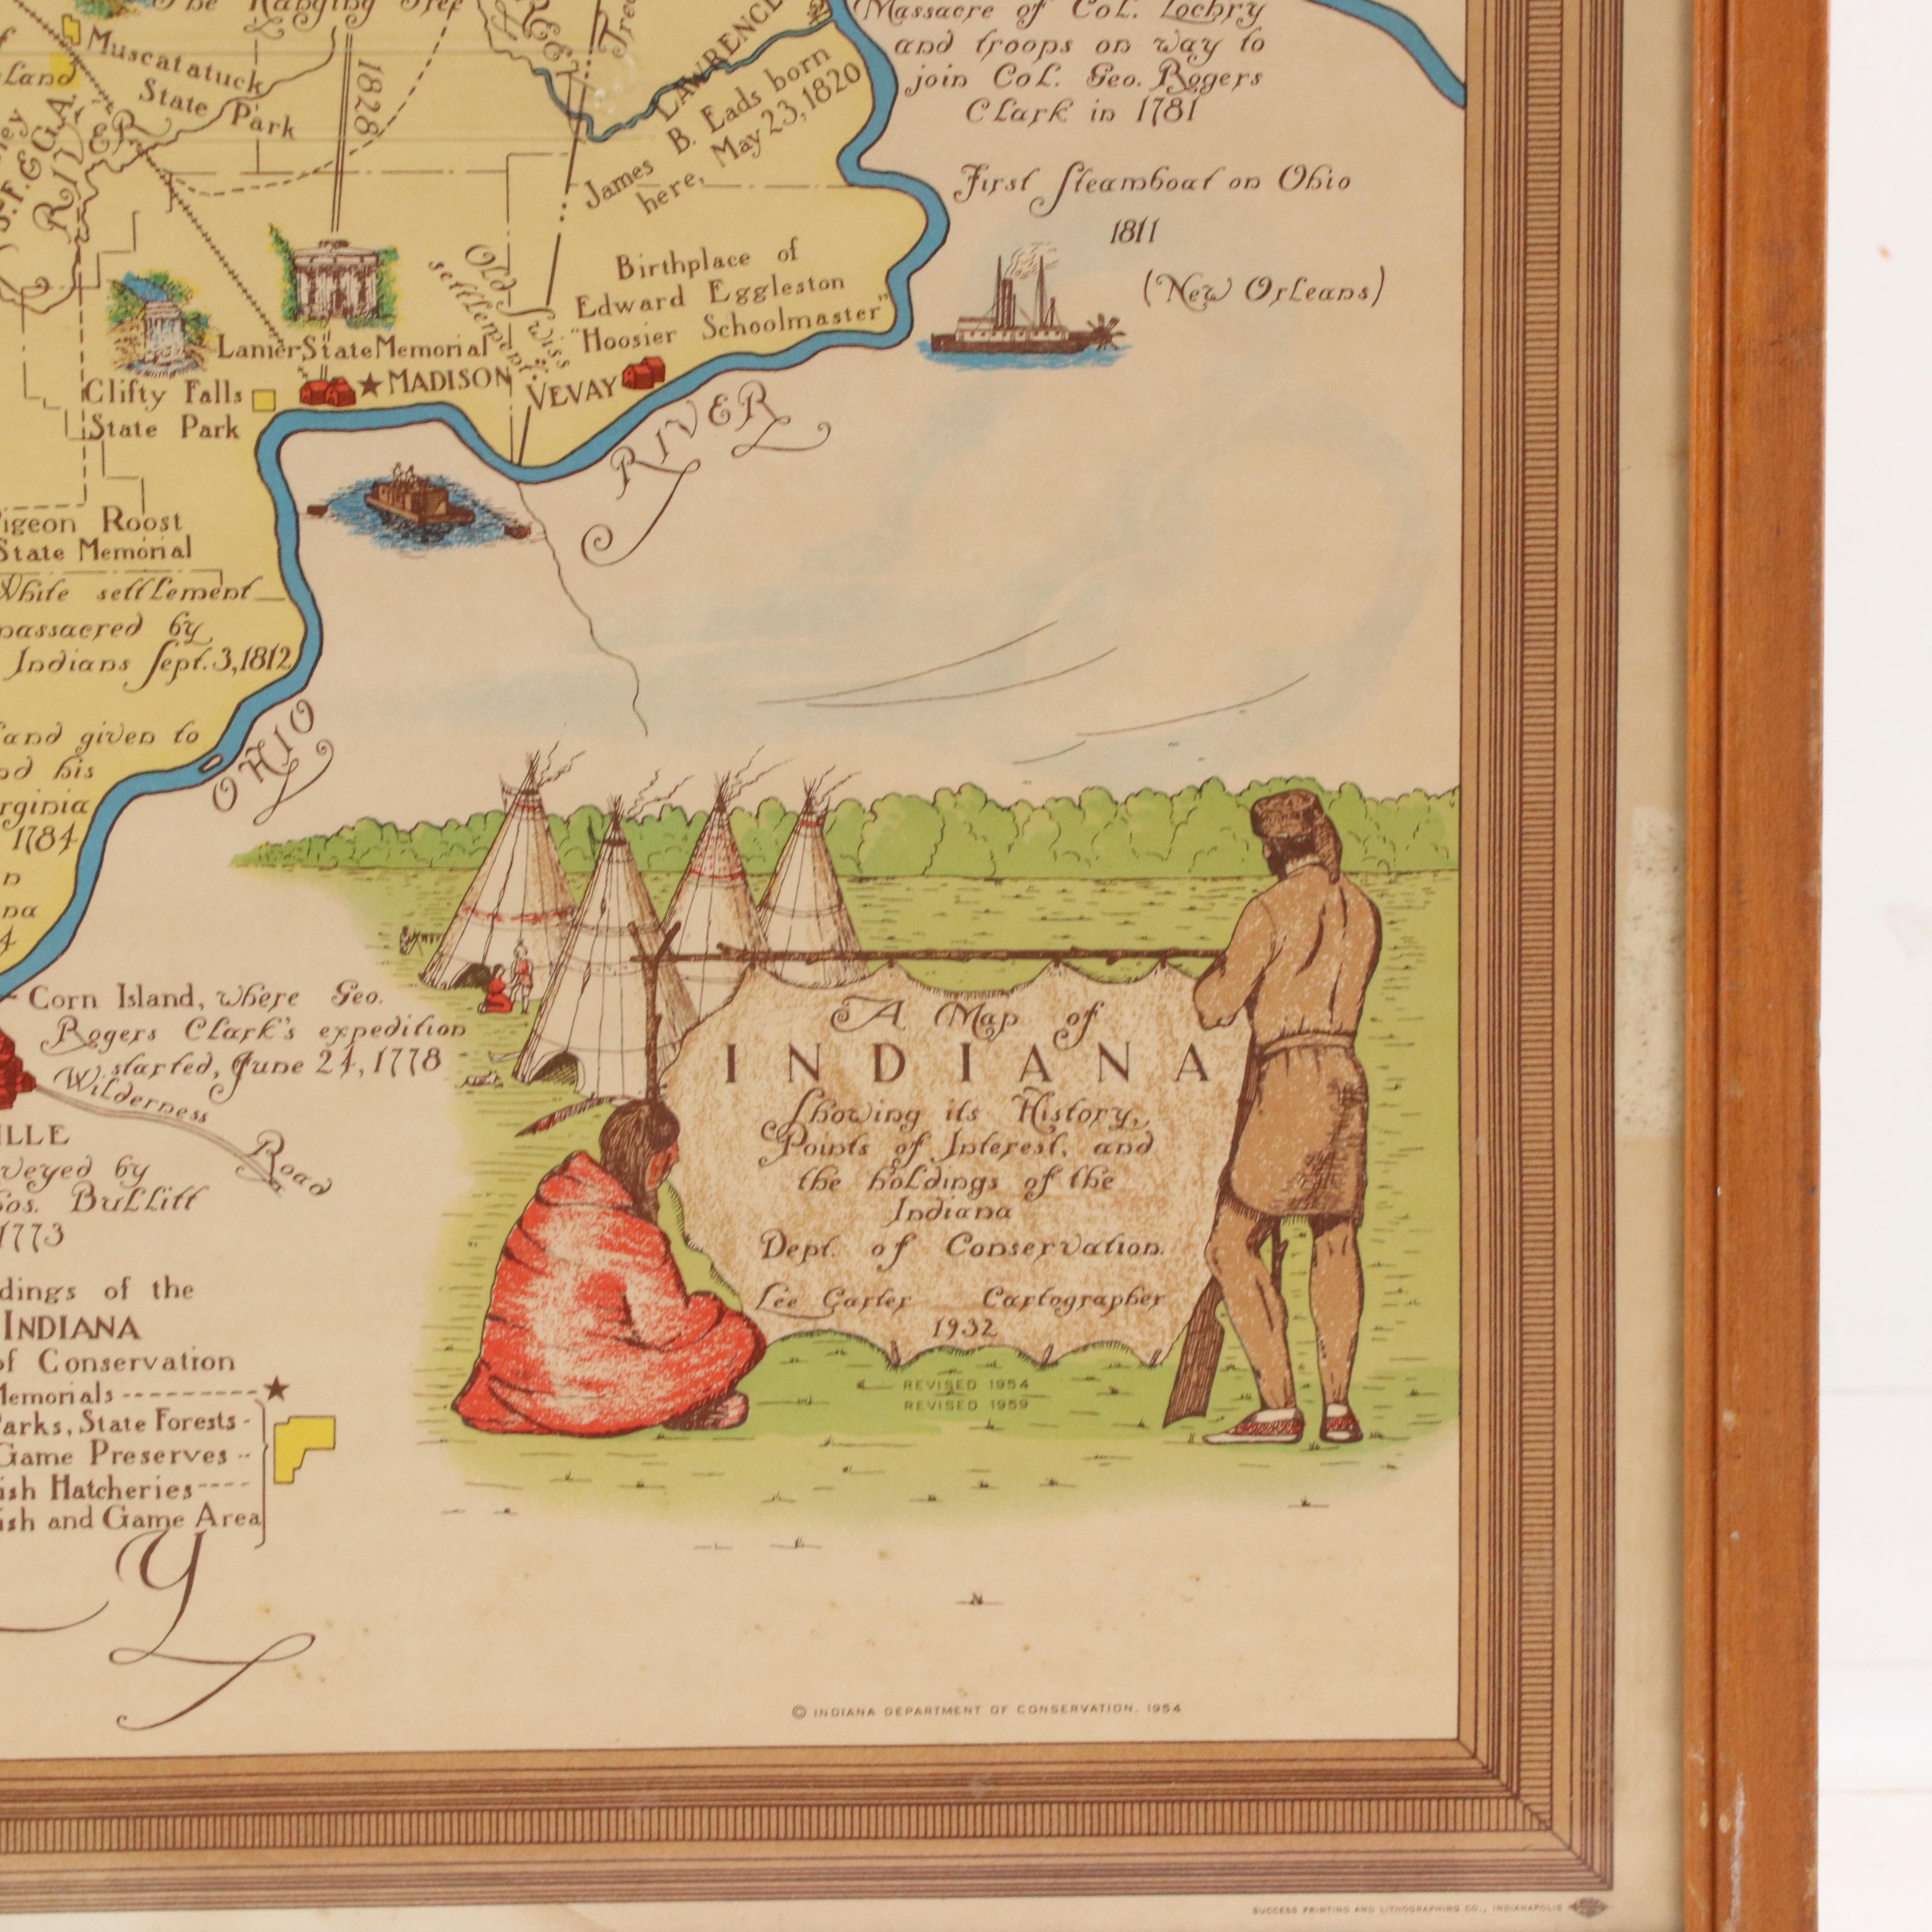 The Hanging Tree
Muscatatuck
State Park
1828
RIVER
LAWRENCE
James B. Eads born
here, May 23, 1820
Massacre of Col. Lochry
and troops on way to
join Col. Geo. Rogers
Clark in 1781
First Steamboat on Ohio
1811
(New Orleans)
Old Swiss
settlement
Birthplace of
Edward Eggleston
"Hoosier Schoolmaster"
Lanier State Memorial
MADISON
VEVAY
Clifty Falls
State Park
RIVER
Roost
State Memorial
White settlement
massacred by
Indians Sept. 3, 1812
OHIO
given to
his
1784
Corn Island, where Geo.
Rogers Clark's expedition
started, June 24, 1778
Wilderness Road
by
Bullitt
1773
of the
INDIANA
of Conservation
Memorials
Parks, State Forests
Game Preserves
Hatcheries
and Game Area
Y
A Map of
INDIANA
Showing its History,
Points of Interest, and
the holdings of the
Indiana
Dept. of Conservation.
Lee Carter Cartographer
1932
REVISED 1954
REVISED 1959
© INDIANA DEPARTMENT OF CONSERVATION, 1954
SUCCESS PRINTING AND LITHOGRAPHING CO., INDIANAPOLIS